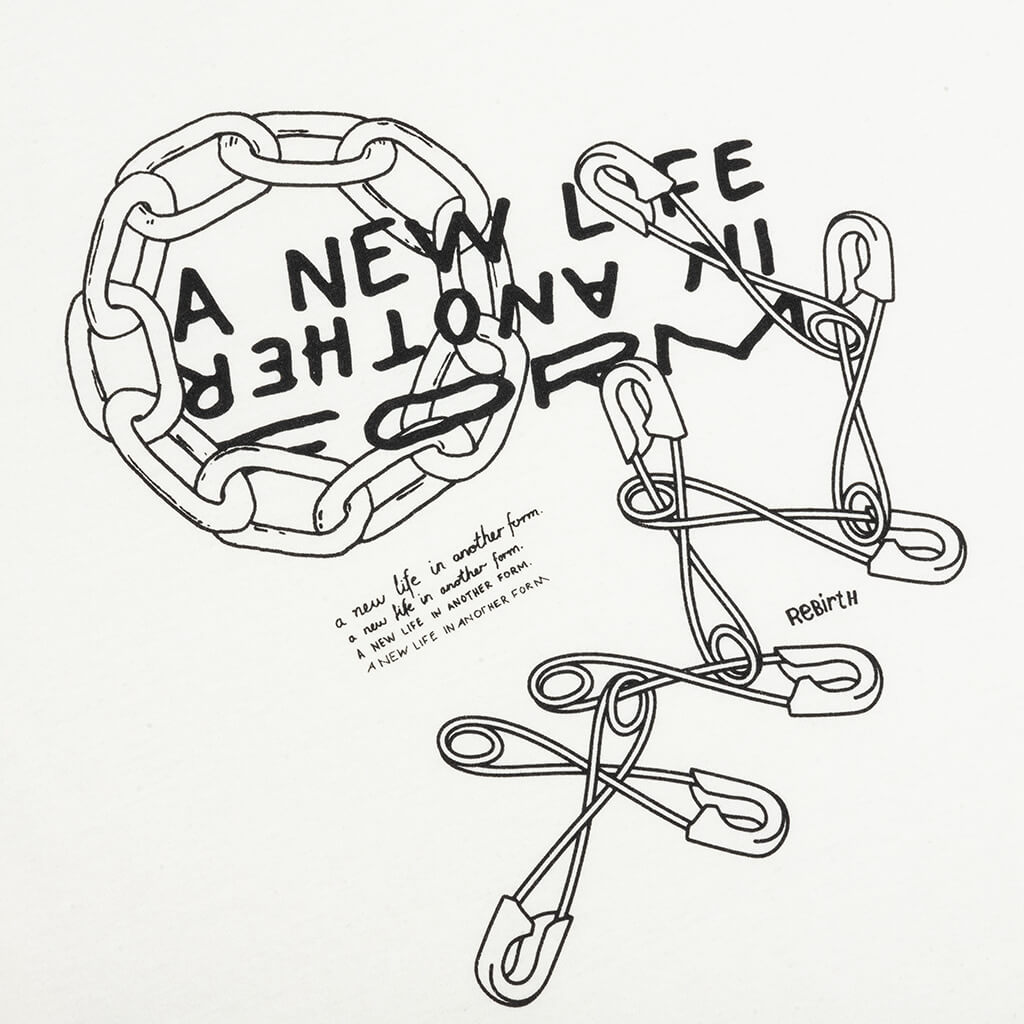 A NEW LIFE
IN ANOTHER
FORM
a new life in another form.
a new life in another form.
A NEW LIFE IN ANOTHER FORM.
A NEW LIFE IN ANOTHER FORM
ReBirtH